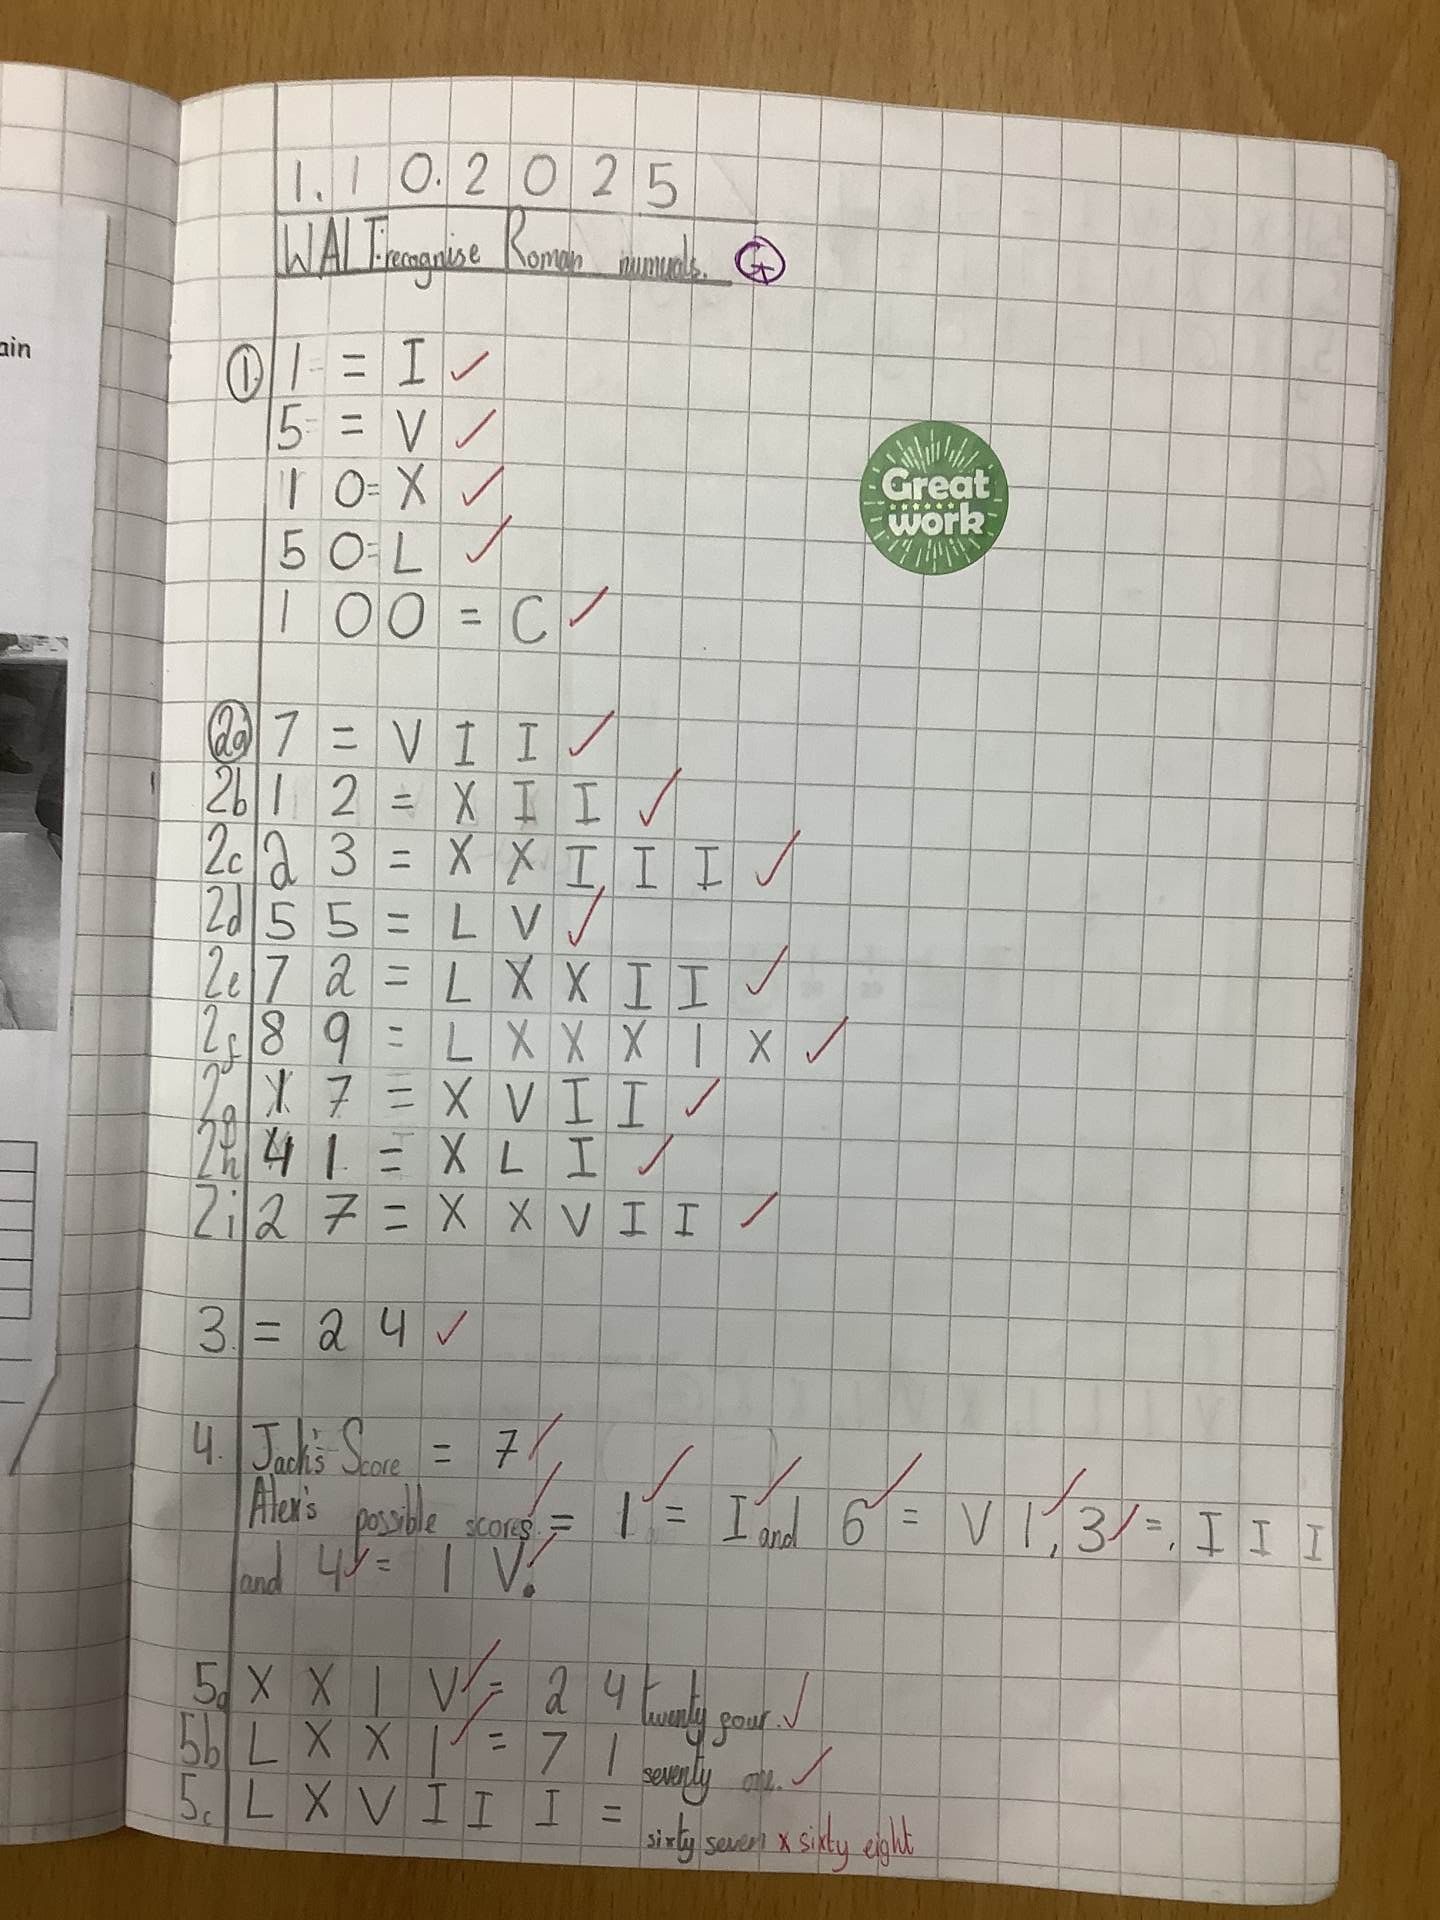 1.10.2025
WALT: recognise Roman numuals. G
ain
1. 1 = I ✓
5 = V ✓
10 = X ✓
50 = L ✓
100 = C ✓
Great
work
2a 7 = VII ✓
2b 12 = XII ✓
2c 23 = XXIII ✓
2d 55 = LV ✓
2e 72 = LXXII ✓
2f 89 = LXXXIX ✓
2g 17 = XVII ✓
2h 41 = XLI ✓
2i 27 = XXVII ✓
3. = 24 ✓
4. Jack's Score = 7 ✓
Alex's possible scores ✓ = 1 ✓ = I ✓ and 6 ✓ = VI ✓, 3 ✓ = . III
and 4 ✓ = IV ✓.
5a XXIV ✓ = 24 twenty four. ✓
5b LXXI ✓ = 71 seventy one. ✓
5c LXVIII = sixty seven x sixty eight